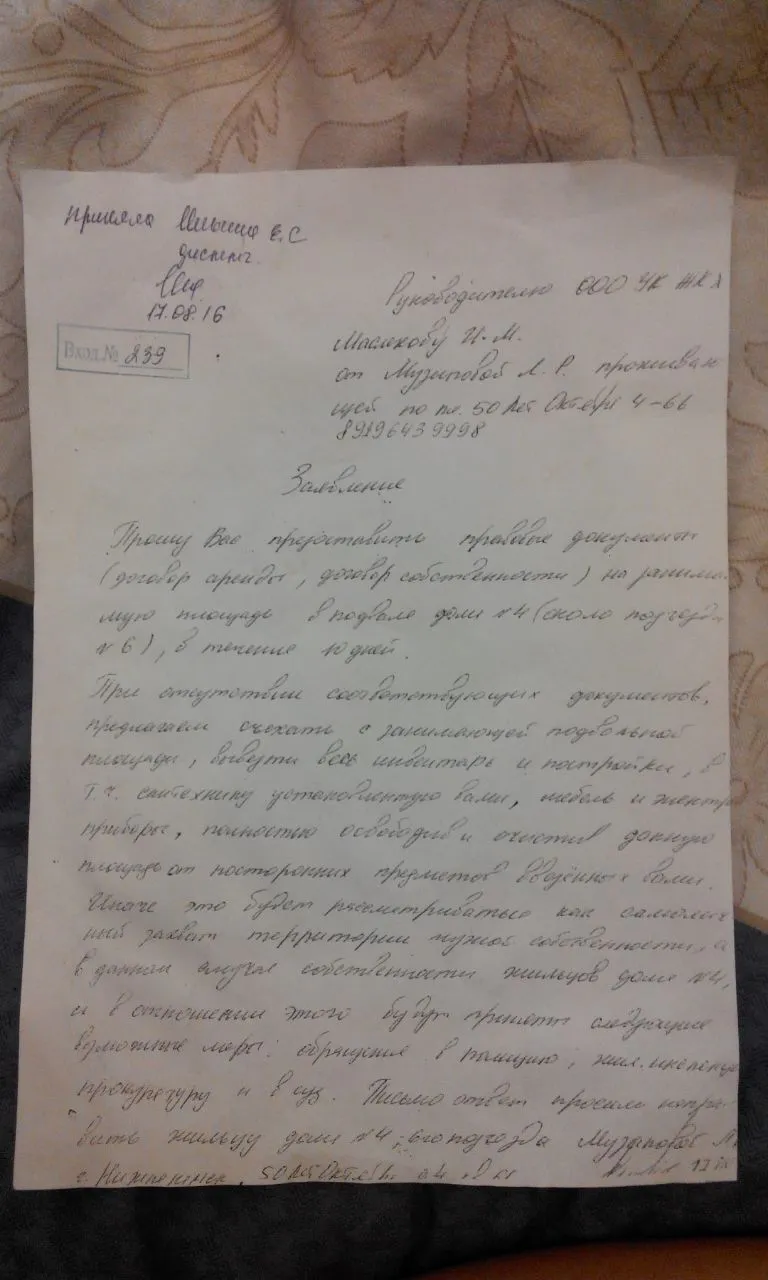 Приняла Е.С
диспетч.
17.08.16
Вход.№ 239
Руководителю ООО УК ЖКХ
Маслкову И.М.
от Музиповой Л. Р. проживаю
щей по пл. 50 лет Октября 4-66
89196439998
Заявление
Прошу Вас предоставить правовые документы
(договор аренды, договор собственности) на занима
мую площадь в подвале дома №4 (около подъезда
№6), в течение 10 дней.
При отсутствии соответствующих документов,
предлагаем съехать с занимающей подвальной
площади, вывезти весь инвентарь и постройки, в
т.ч. сантехнику установленную вами, мебель и электро
приборы, полностью освободив и очистив данную
площадь от посторонних предметов ввезённых вами.
Иначе это будет рассматриваться как самоволь
ный захват территории чужой собственности, а
в данном случае собственности жильцов дома №4,
и в отношении этого будут приняты следующие
возможные меры: обращение в полицию, жил. инспекцию
прокуратуру и в суд. Письмо ответ просим напра
вить жильцу дома №4, 6го подъезда Музиповой
50 лет Октября